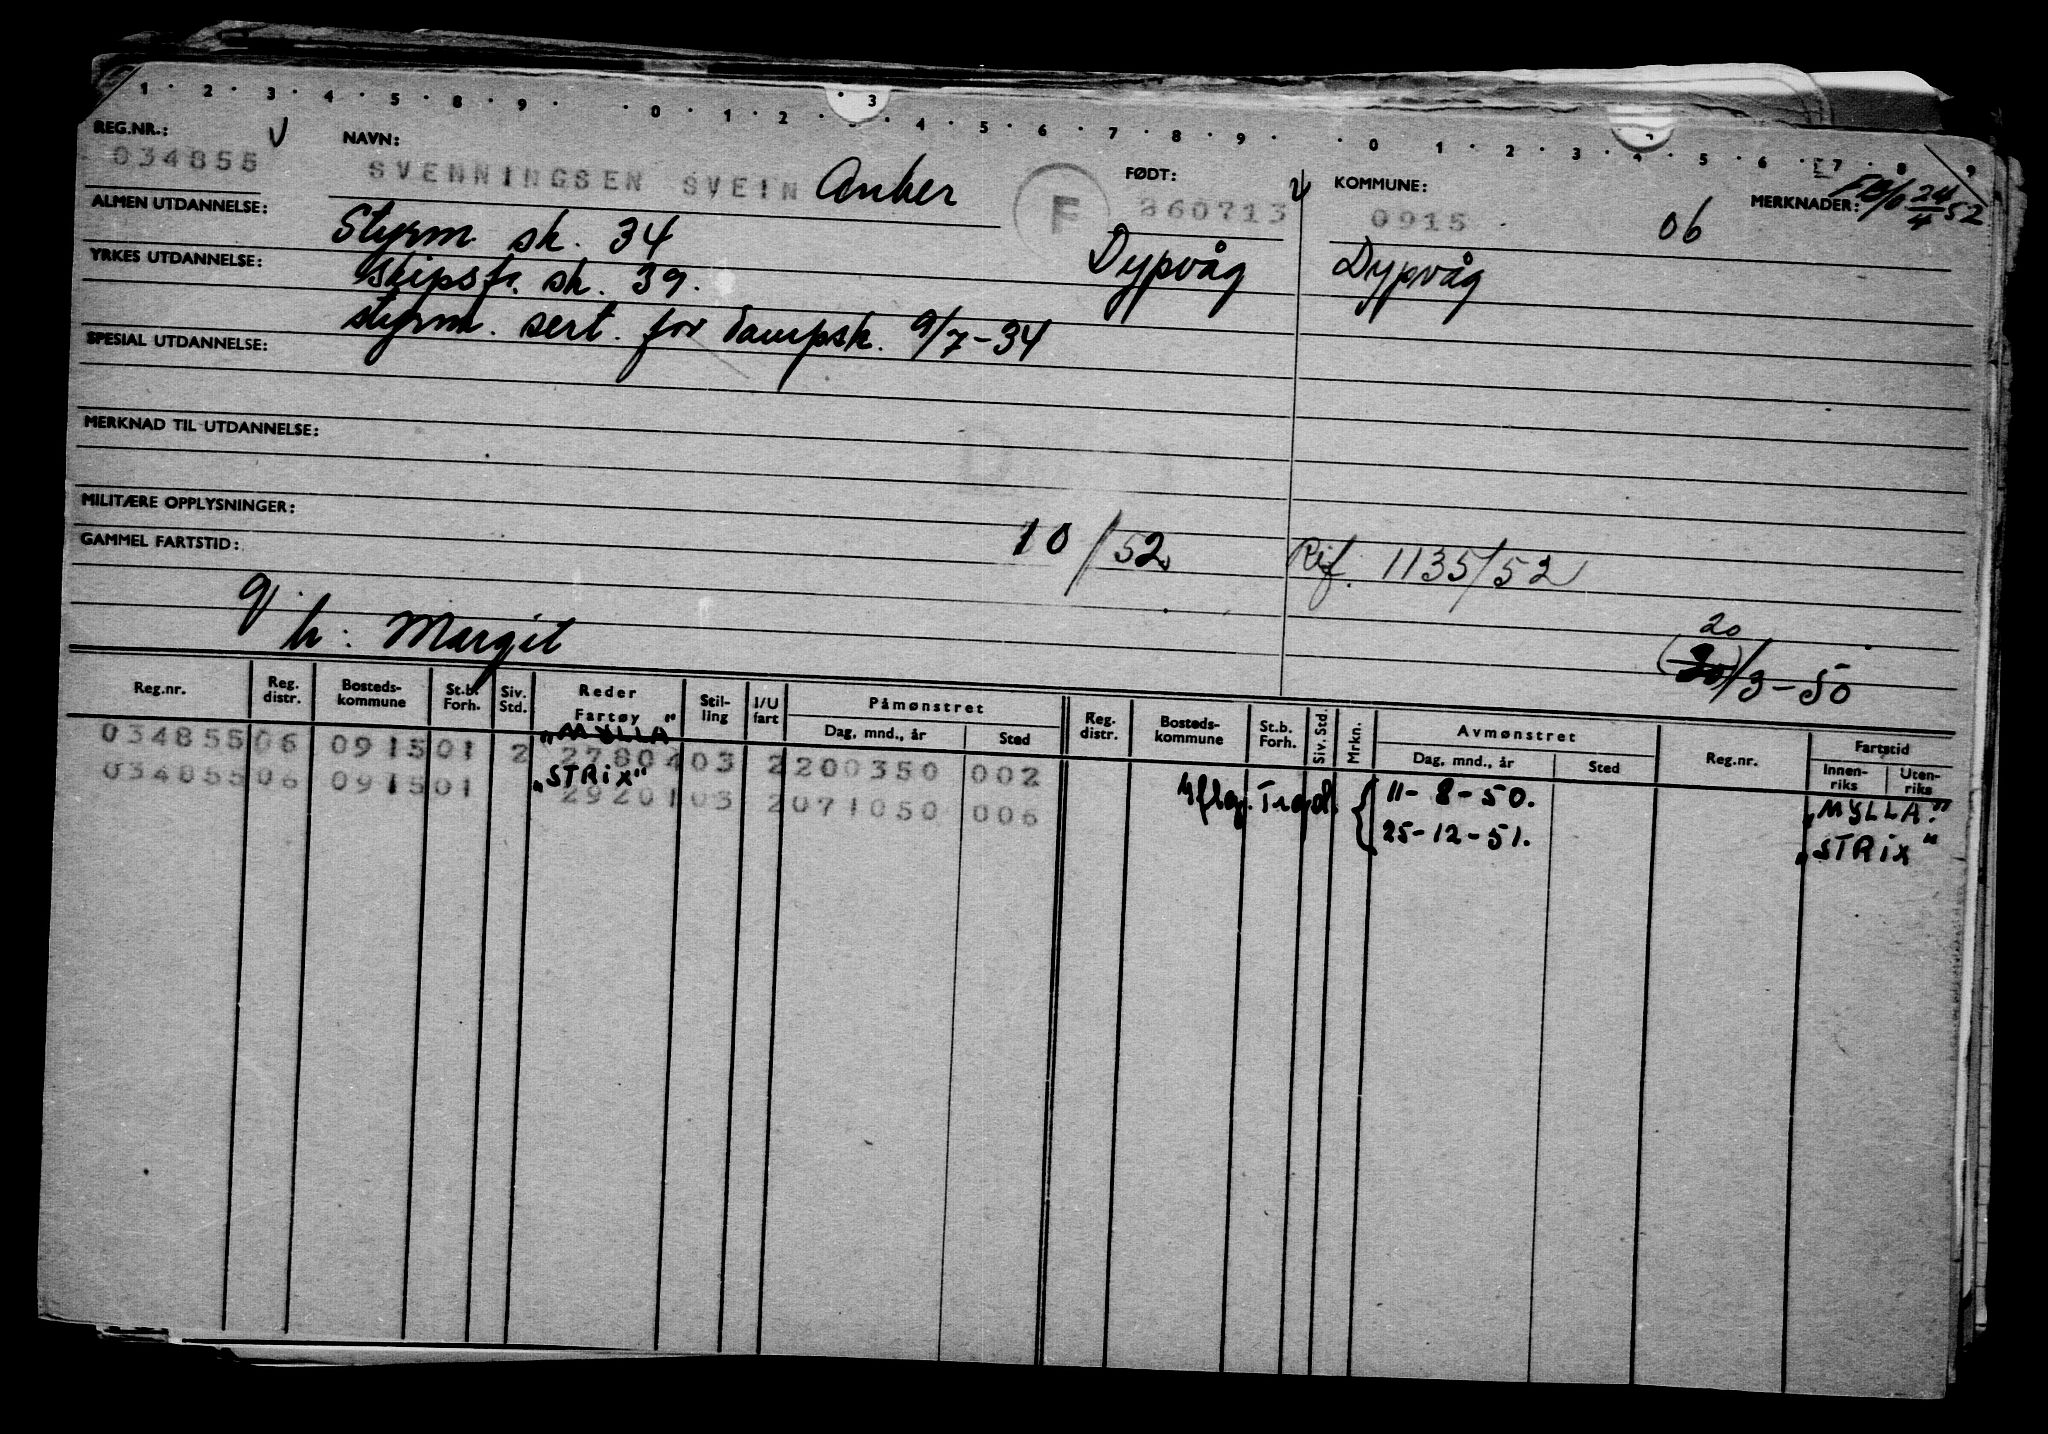 1 · 2 · 3 · 4 · 5 · 8 · 9 · · 0 · 1 · 2 · 3 · 4 · 5 · 6 · 7 · 8 · 9 · · 0 · 1 · 2 · 3 · 4 · 5 · 6 · 7 · 8 · 9
REG.NR.: NAVN: FØDT: KOMMUNE: MERKNADER:
034855 SVENNINGSEN SVEIN Anker F 860713 0915 06 24/4 52
ALMEN UTDANNELSE: Styrm. sk. 34 Dypvåg Dypvåg
YRKES UTDANNELSE: skipsfr. sk. 39.
styrm. sert. for dampsk. 9/7-34
SPESIAL UTDANNELSE:
MERKNAD TIL UTDANNELSE:
MILITÆRE OPPLYSNINGER:
10/52 Rif. 1135/52
GAMMEL FARTSTID:
g. h: Margit (20)/3-50
Reg.nr. Reg. distr. Bosteds-kommune St.b. Forh. Siv. Std. Reder Fartøy Stil-ling I/U fart Påmønstret Dag, mnd., år Sted Reg. distr. Bosteds-kommune St.b. Forh. Siv. Std. Mrkn. Avmønstret Dag, mnd., år Sted Reg.nr. Fartstid Innen-riks Uten-riks
"MYLLA"
034855 06 0915 01 2 27804 03 2 200350 002 11-8-50. "MYLLA."
"STRiX"
034855 06 0915 01 29201 03 2 071050 006 25-12-51. "STRiX"